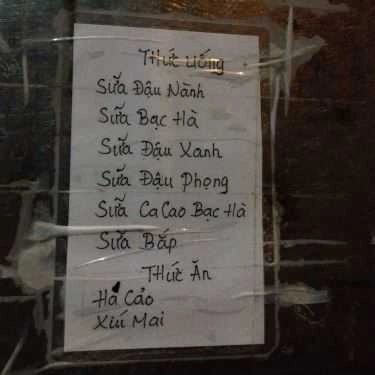 Thức uống
Sữa Đậu Nành
Sữa Bạc Hà
Sữa Đậu Xanh
Sữa Đậu Phọng
Sữa Ca Cao Bạc Hà
Sữa Bắp
Thức Ăn
Há Cảo
Xíu Mại